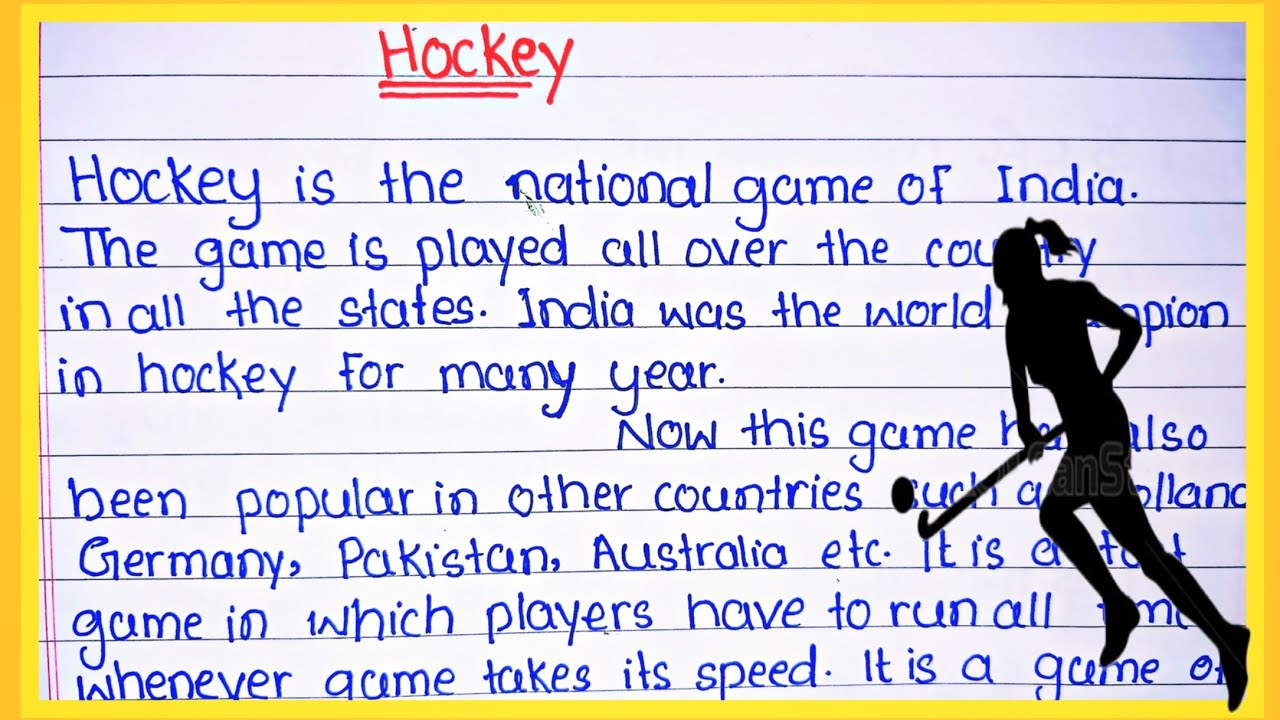 Hockey
Hockey is the national game of India.
The game is played all over the country
in all the states. India was the world champion
in hockey for many year.
Now this game has also
been popular in other countries such as Holland
Germany, Pakistan, Australia etc. It is a fast
game in which players have to run all time
whenever game takes its speed. It is a game of